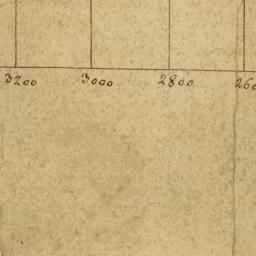 3200 3000 2800 260